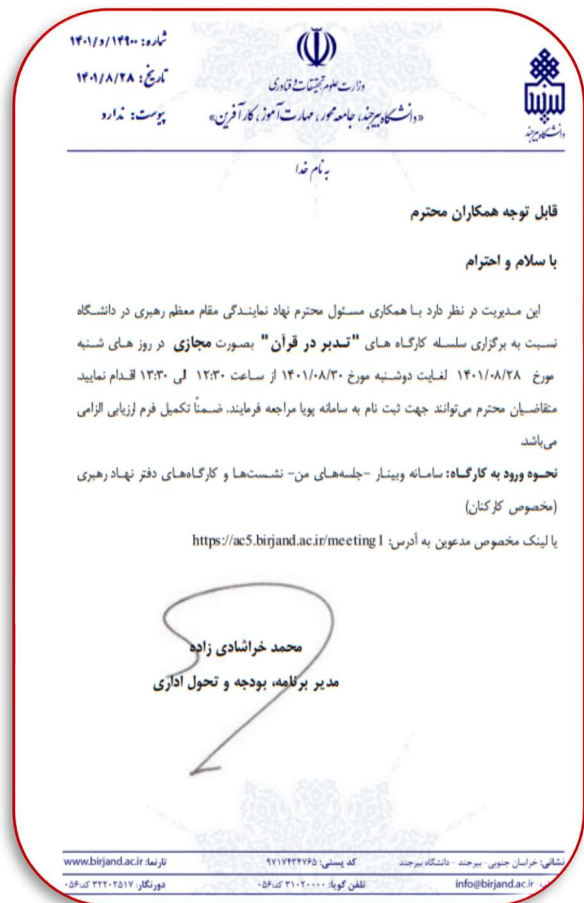 شماره: ۱۴۰۱/د/۱۴۹۰۰
تاریخ: ۱۴۰۱/۸/۲۸
پیوست: ندارد
وزارت علوم تحقیقات و فناوری
«دانشگاه بیرجند، جامعه محور، مهارت آموز، کارآفرین»
دانشگاه بیرجند
به نام خدا
قابل توجه همکاران محترم
با سلام و احترام
این مدیریت در نظر دارد با همکاری مسئول محترم نهاد نمایندگی مقام معظم رهبری در دانشگاه
نسبت به برگزاری سلسله کارگاه های "تدبر در قرآن" بصورت مجازی در روز های شنبه
مورخ ۱۴۰۱/۰۸/۲۸ لغایت دوشنبه مورخ ۱۴۰۱/۰۸/۳۰ از ساعت ۱۲:۳۰ لی ۱۳:۳۰ اقدام نمایید.
متقاضیان محترم می‌توانند جهت ثبت نام به سامانه پویا مراجعه فرمایند. ضمناً تکمیل فرم ارزیابی الزامی
می‌باشد.
نحوه ورود به کارگاه: سامانه وبینار -جلسه‌های من- نشست‌ها و کارگاه‌های دفتر نهاد رهبری
(مخصوص کارکنان)
یا لینک مخصوص مدعوین به آدرس: https://ac5.birjand.ac.ir/meeting1
محمد خراشادی زاده
مدیر برنامه، بودجه و تحول اداری
نشانی: خراسان جنوبی - بیرجند - دانشگاه بیرجند کد پستی: ۹۷۱۷۴۳۴۷۶۵ تارنما: www.birjand.ac.ir
info@birjand.ac.ir تلفن گویا: ۳۱۰۲۰۰۰۰ کد:۰۵۶ دورنگار: ۳۲۲۰۲۵۱۷ کد:۰۵۶